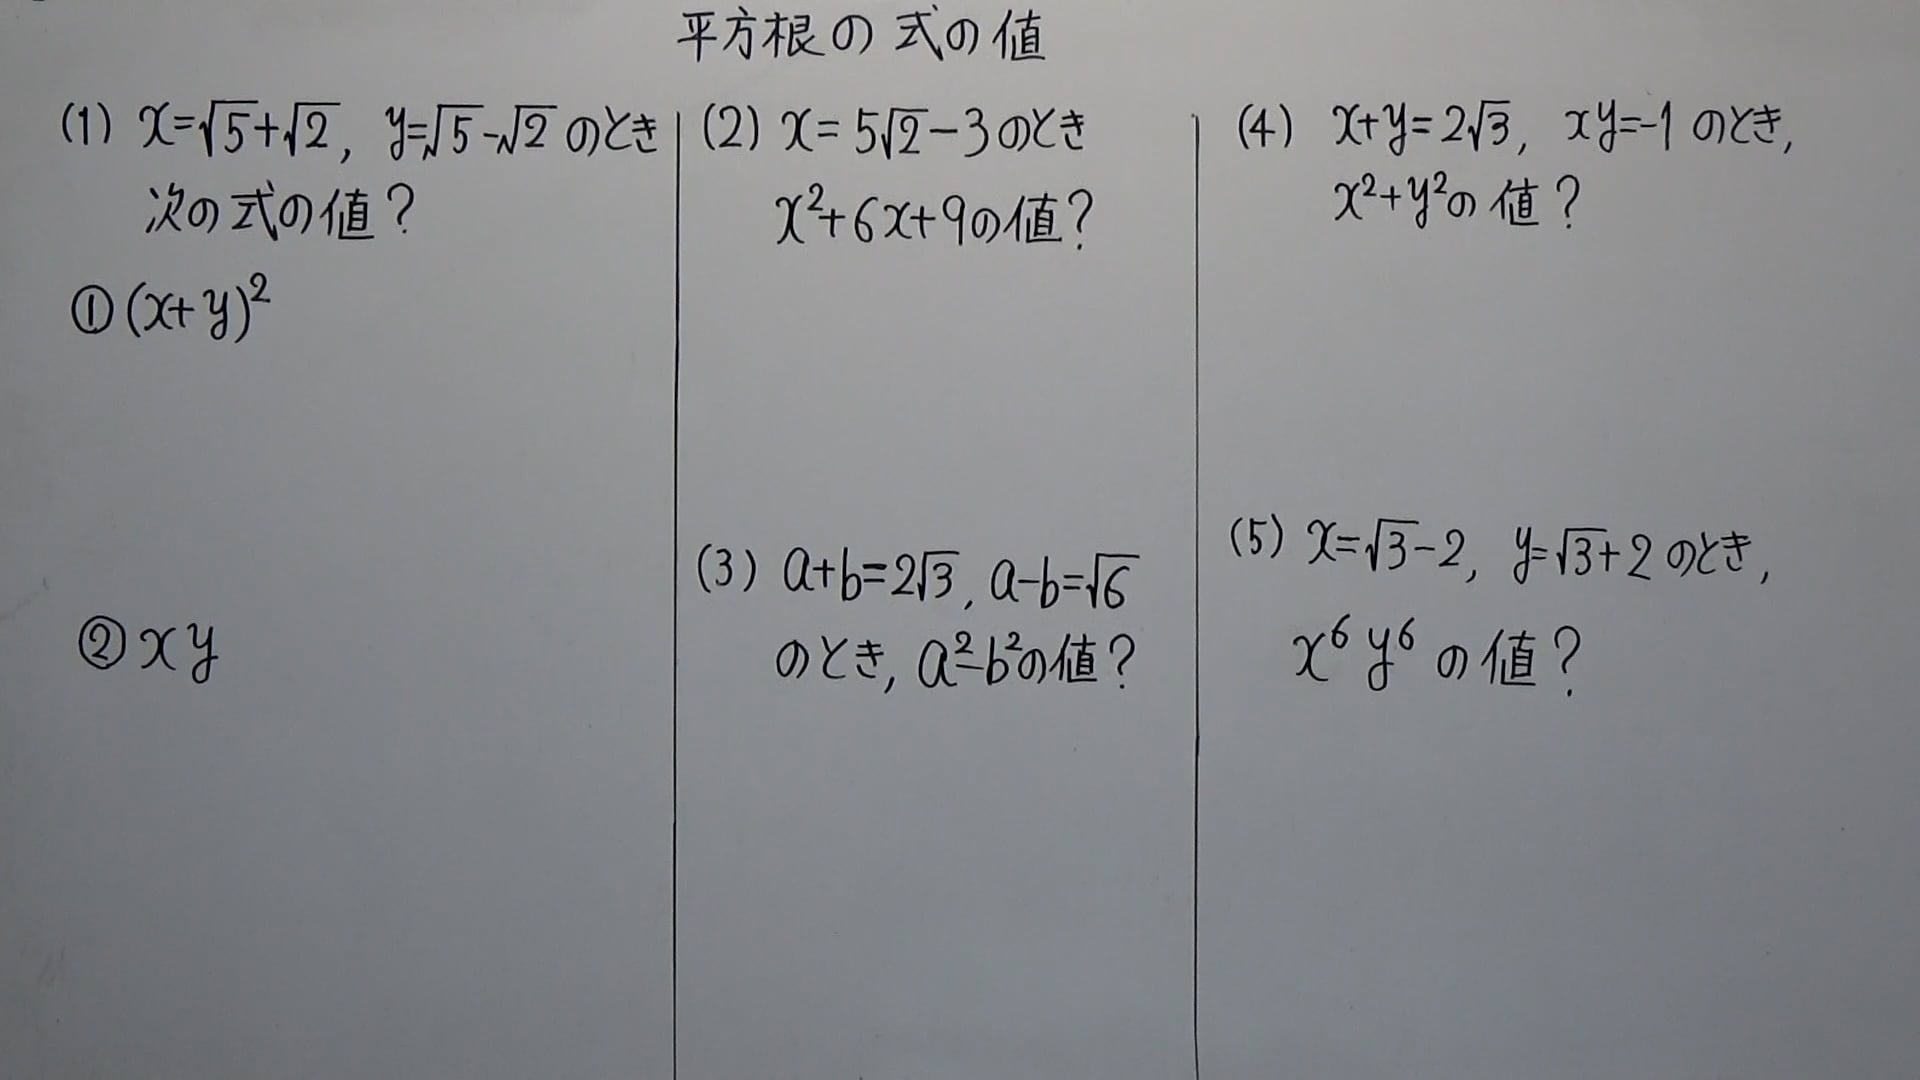 平方根の式の値
(1) x=√5+√2, y=√5-√2 のとき
次の式の値?
① (x+y)²
② xy
(2) x=5√2-3のとき
x²+6x+9の値?
(3) a+b=2√3, a-b=√6
のとき, a²-b²の値?
(4) x+y=2√3, xy=-1 のとき,
x²+y²の値?
(5) x=√3-2, y=√3+2 のとき,
x⁶y⁶の値?